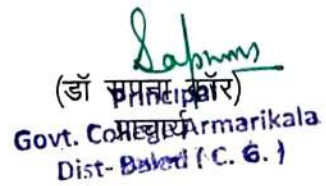 (डॉ सपना कौर)
Principal
प्राचार्य
Govt. College Armarikala
Dist- Balod (C. G.)